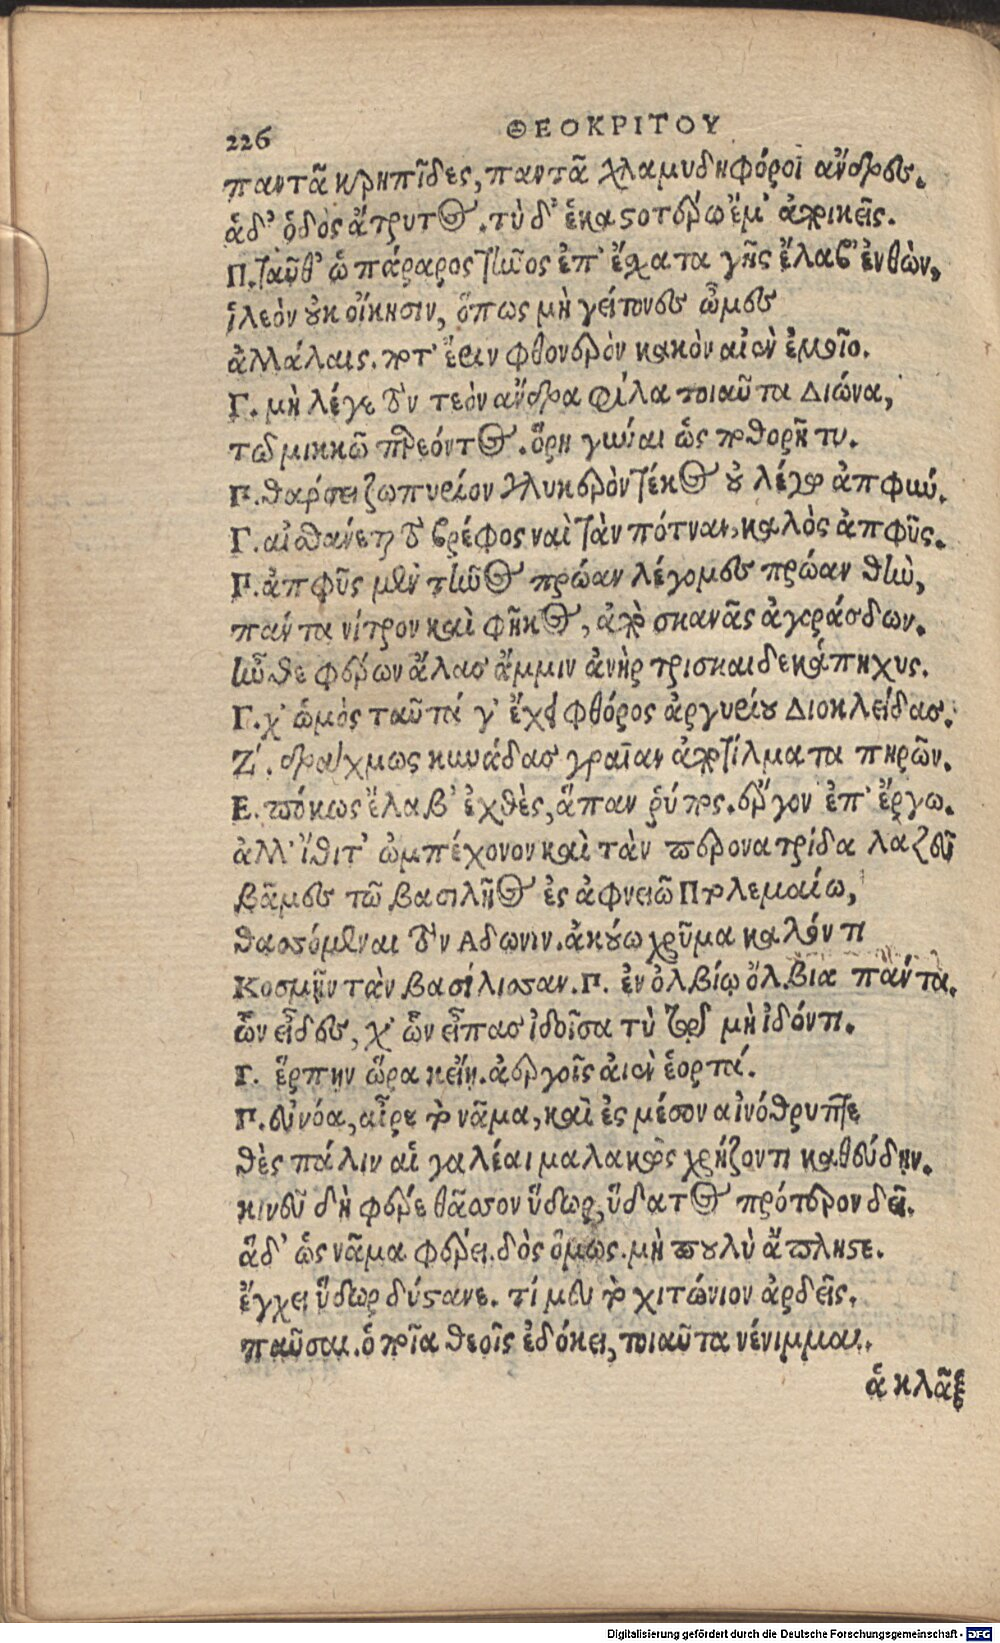 226 ΘΕΟΚΡΙΤΟΥ
παντᾶ κρηπῖδες, παντᾶ χλαμυδηφόροι ἄνδρες.
ἁδ' ὁδὸς ἄτρυτος. τὺ δ' ἑκαστοτέρω ἔμ' ἀποικεῖς.
Π. ταῦθ' ὡ πάραρος τῆνος ἐπ' ἔσχατα γῆς ἔλαβ' ἐνθὼν,
ἰλεὸν οὐκ οἴκησιν, ὅπως μὴ γείτονες ὦμες
ἀλλάλαις. ποτ' ἔριν φθονερὸν κακὸν αἰὲν ἐμοῖο.
Γ. μὴ λέγε τὸν τεὸν ἄνδρα φίλα τοιαῦτα Διώνα,
τῶ μικκῶ παρεόντος. ὅρη γύναι ὡς ποθορῆ τυ.
Π. θάρσει ζωπυρίον γλυκερὸν τέκος οὐ λέγω ἀπφύν.
Γ. αἰσθάνεται τὸ βρέφος ναὶ τὰν πότναν, καλὸς ἀπφῦς.
Π. ἀπφῦς μὲν τῆνος πρώαν λέγομες πρώαν θὴν,
πάντα νίτρον καὶ φῆκος, ἀπὸ σκανᾶς ἀγοράσδων.
ἦνθε φέρων ἅλας ἄμμιν ἀνὴρ τρισκαιδεκάπηχυς.
Γ. χ' ὡμὸς ταῦτά γ' ἔχει φθόρος ἀργυρίου Διοκλείδας.
Ζ'. δραχμως κυνάδας γραῖαν ἀποτίλματα πηρῶν.
Ε. πόκως ἔλαβ' ἐχθὲς, ἅπαν ῥύπος. ἔργον ἐπ' ἔργω.
ἀλλ' ἴθι τ' ὠμπέχονον καὶ τὰν περονατρίδα λαζεῦ
βᾶμες τῶ βασιλῆος ἐς ἀφνειῶ Πτολεμαίω,
θασόμεναι τὸν Αδωνιν. ἀκούω χρῆμα καλόν τι
Κοσμῆν τὰν βασίλισσαν. Π. ἐν ὀλβίῳ ὄλβια πάντα.
ὧν εἶδες, χ' ὧν εἶπας ἰδοῖσα τὺ τῷ μὴ ἰδόντι.
Γ. ἕρπην ὥρα κ' εἴη. ἀεργοῖς αἰὲν ἑορτά.
Π. εὐνόα, αἶρε τὸ νᾶμα, καὶ ἐς μέσον αἰνόθρυπτε
θὲς πάλιν αἱ γαλέαι μαλακῶς χρῄζοντι καθεύδην.
κινεῦ δὴ φέρε θᾶσσον ὕδωρ, ὕδατος πρότερον δεῖ.
ἅδ' ὡς νᾶμα φέρει. δὸς ὅμως. μὴ πουλὺ ἄπληστε.
ἔγχει ὕδωρ δύστανε. τί μευ τὸ χιτώνιον ἀρδεῖς.
παῦσαι. ὁποῖα θεοῖς ἐδόκει, τοιαῦτα νένιμμαι.
ἁ κλᾲξ
Digitalisierung gefördert durch die Deutsche Forschungsgemeinschaft - DFG